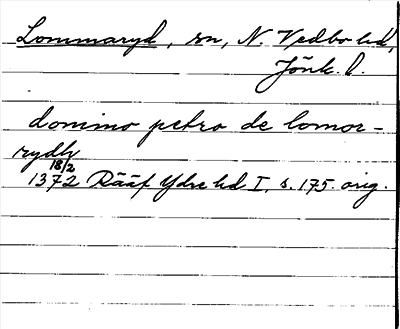 Lommaryd, sn, N. Vedbo hd,
Jönk. l.
domino petro de lomor-
rydh
18/2
1372 Rääf Ydre hd I, s. 175. orig.